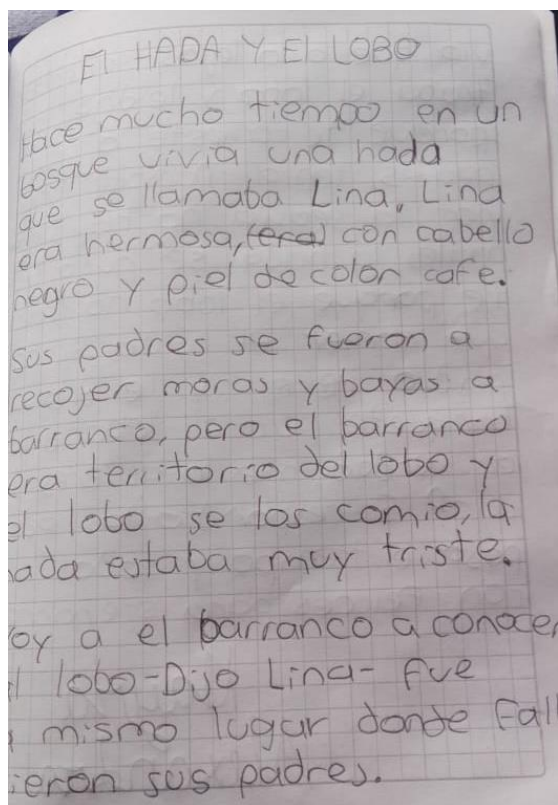 El HADA Y El LOBO
Hace mucho tiempo en un
bosque vivia una hada
que se llamaba Lina, Lina
era hermosa, (era) con cabello
negro y piel de color cafe.
Sus padres se fueron a
recojer moras y bayas a
barranco, pero el barranco
era territorio del lobo y
el lobo se los comio, la
ada estaba muy triste.
oy a el barranco a conocer
l lobo-Dijo Lina- fue
mismo lugar donde Fall
ieron sus padres.